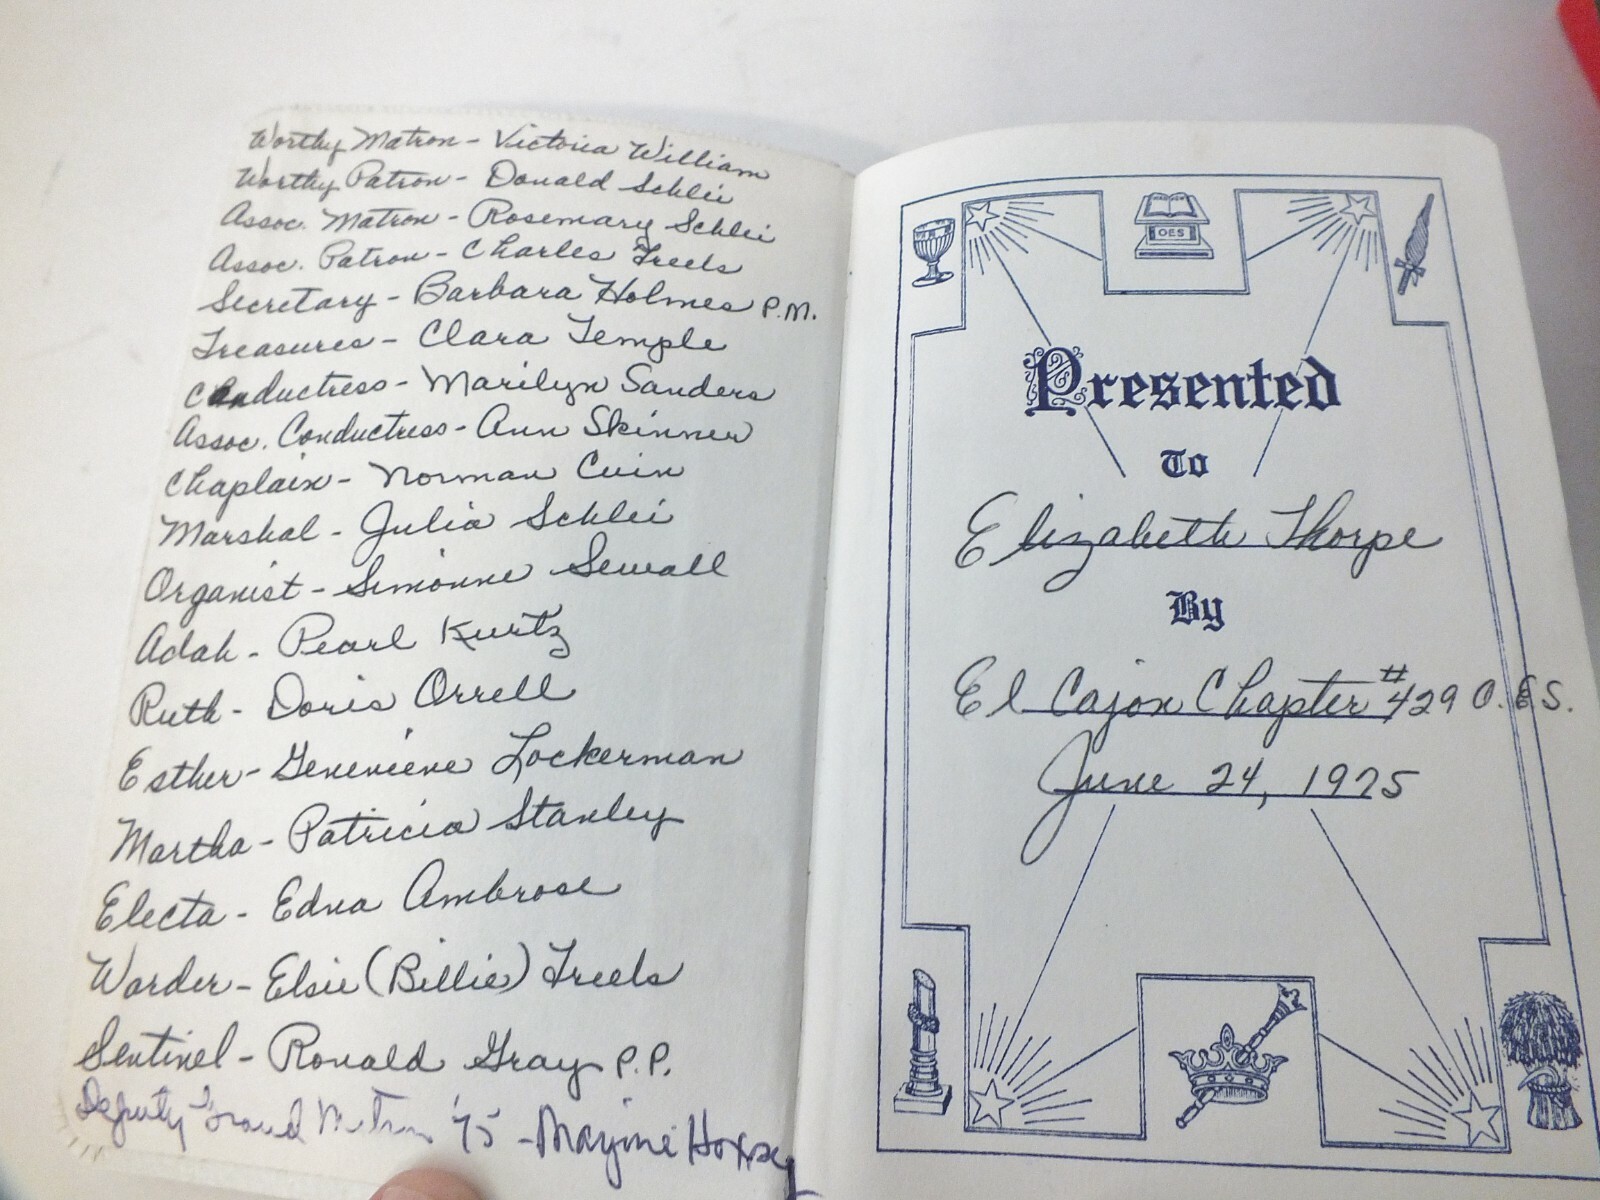 Worthy Matron - Victoria William
Worthy Patron - Donald Schlei
Assoc. Matron - Rosemary Schlei
Assoc. Patron - Charles Freels
Secretary - Barbara Holmes P.M.
Treasures - Clara Temple
Conductress - Marilyn Sanders
Assoc. Conductress - Ann Skinner
Chaplain - Norman
Marshal - Julia Schlei
Organist - Simonne Sewall
Adah - Pearl Kurtz
Ruth - Doris Orrell
Esther - Genevieve Lockerman
Martha - Patricia Stanley
Electa - Edna Ambrose
Warder - Elsie (Billie) Freels
Sentinel - Ronald Gray P.P.
Deputy Grand Matron '75 -
OES
Presented
To
Elizabeth Thorpe
By
El Cajon Chapter #429 O.E.S.
June 24, 1975